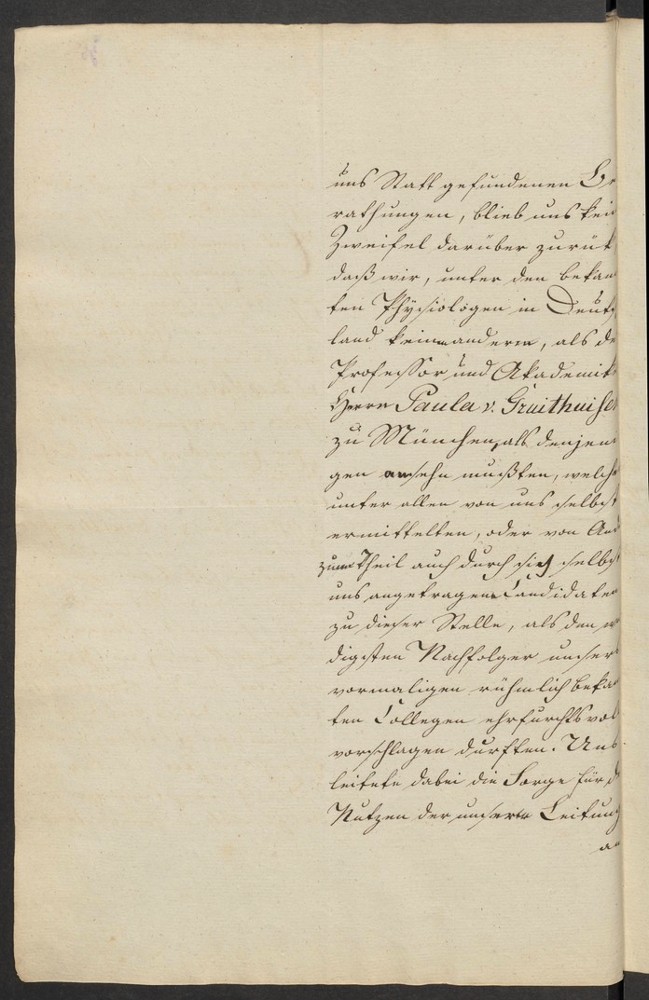 uns Statt gefundenen Be
rathungen, blieb uns kein
Zweifel darüber zurük
daß wir, unter den bekan
ten Physiologen in Deutsch
land keinen anderen, als de
Professor und Akademik
Herrn Paula v. Gruithuisen
zu München, als denjeni
gen ansehn mußten, welch
unter allen von uns selbst
ermittelten, oder von And
zum Theil auch durch sich selbst
uns angetragenen Candidaten
zu dieser Stelle, als den w
digsten Nachfolger unsers
vormaligen rühmlich bekan
ten Collegen ehrfurchtsvol
vorschlagen durften. Uns
leitete dabei die Sorge für d
Nutzen der unserer Leitung
an